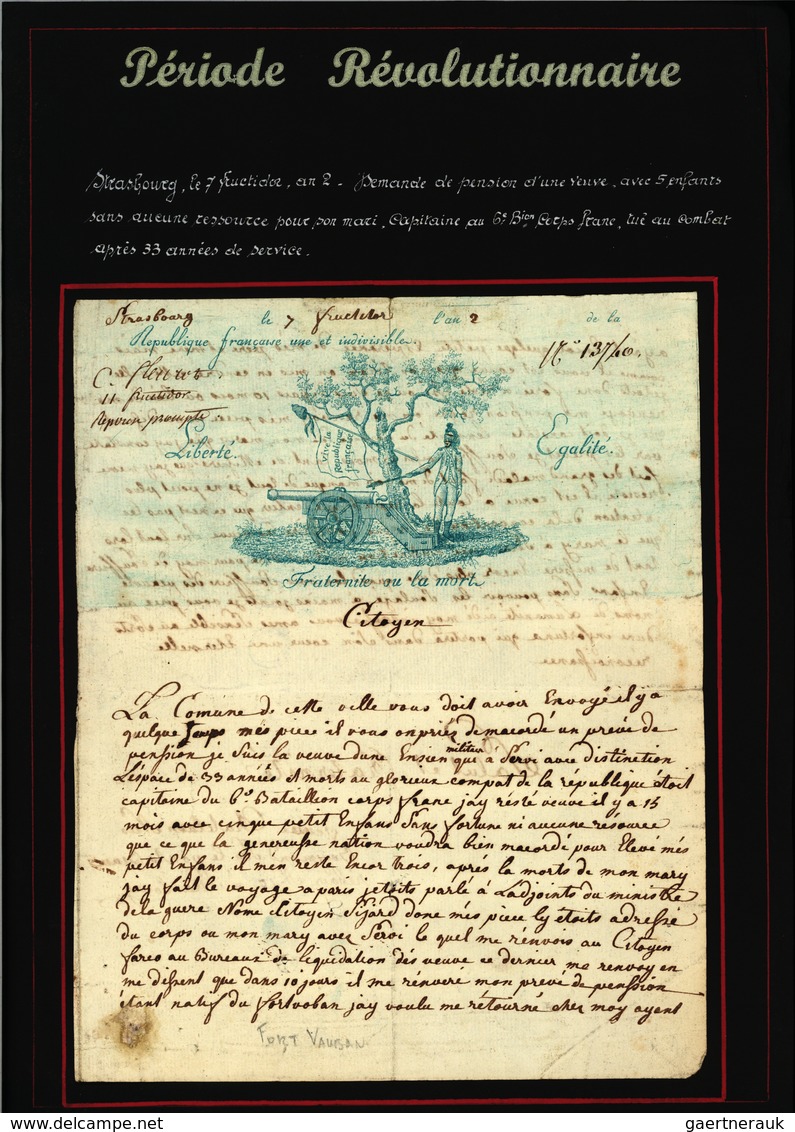 Période Révolutionnaire
Strasbourg, le 7 fructidor, an 2 - Demande de pension d'une veuve, avec 5 enfants
sans aucune ressource pour son mari, Capitaine au 6e Bion Corps franc, tué au combat
après 33 années de service.
Strasbourg le 7 fructidor l'an 2 de la
Republique française une et indivisible.
No 13740.
C.
11 fructidor
prompte
Liberté. Egalité.
Vive la
Republique
française
Fraternite ou la mort.
Citoyen
La Comune de cette ville vous doit avoir Envoyé il y a
quelque Temps més piece il vous on priez de macordé un preve de
pension je Suis la veuve dune Ensien militair qui à Servi avec distinction
L'espace de 33 années et morts au glorieux compat de la république étoit
capitaine du 6e Bataillion corps franc jay résté veuve il y a 15
mois avec cinque petit Enfans Sans fortune ni aucune résource
que ce que la genereusse nation voudra bien macordé pour Elevé més
petit Enfans il m'en reste Encor trois, aprés la morts de mon mary
jay fait le voyage a paris jetoits parlé à Ladjoints du ministre
de la guere Nome Citoyen Pijard done més piece ly étoits adressé
du corps ou mon mary avez Servi le quel me rénvois au Citoyen
fareo au Bureaux de liquidation dés veuve ce dernier ma renvoy en
me disent que dans 10 jours il me rénvere mon preve de pension
étant natif du fortvoban jay voulu me rétourné cher moy ayent
FORT VAUBAN
gaertnerauk